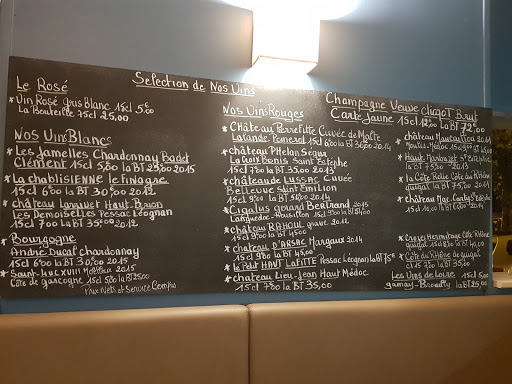 Selection de Nos Vins
Le Rosé
Vin Rosé gris Blanc 15cl 5€
La Bouteille 75cl 25,00
Nos Vins Blancs
Les Jamelles Chardonnay Badet
Clément 15cl 5,00 la BT 25,00 2015
La chablisienne le finage
15cl 6,00 la BT 30,00 2012
château Larrivet Haut.Brion
Les Demoiselles Pessac Léognan
15cl 7,00 la BT 35,00 2012
Bourgogne
André Ducal chardonnay
15cl 6,00 la BT 30,00 2015
Saint.luc XVIII Moelleux 2015
Côte de gascogne 15cl 5,00 la BT 25,00
Prix Nets et Service Compris
Nos Vins Rouges
Château Pierrefitte Cuvée de Malte
Lalande Pomerol
château Phélan Ségur
La Croix Bonis Saint Estèphe
15cl 7,00 la BT 35,00 2013
château de Lussac Cuvée
Bellevue Saint Emilion
Cigalus gérard Bertrand 2015
Languedoc-Roussillon
château Rahoul graves 2012
château d'Arsac Margaux 2014
le Petit Haut Lafitte Pessac Léognan la BT
chateau Lieu.Jean Haut Médoc
15cl 7,00 la BT 35,00
Champagne Veuve clicquot Brut
Carte Jaune 15cl 12,00 la BT 72,00
château Maucaillou
Moulis.Médoc
la Côte Rotie Côte du Rhône
guigal la BT 75,00
Crozes Hermitage Côte Rhône
guigal 15cl 8,00 la BT 40,00
Côte du Rhône de guigal
la BT 35,00
Les Vins de Loire 15cl 5,00
gamay-Brouilly la BT 25,00